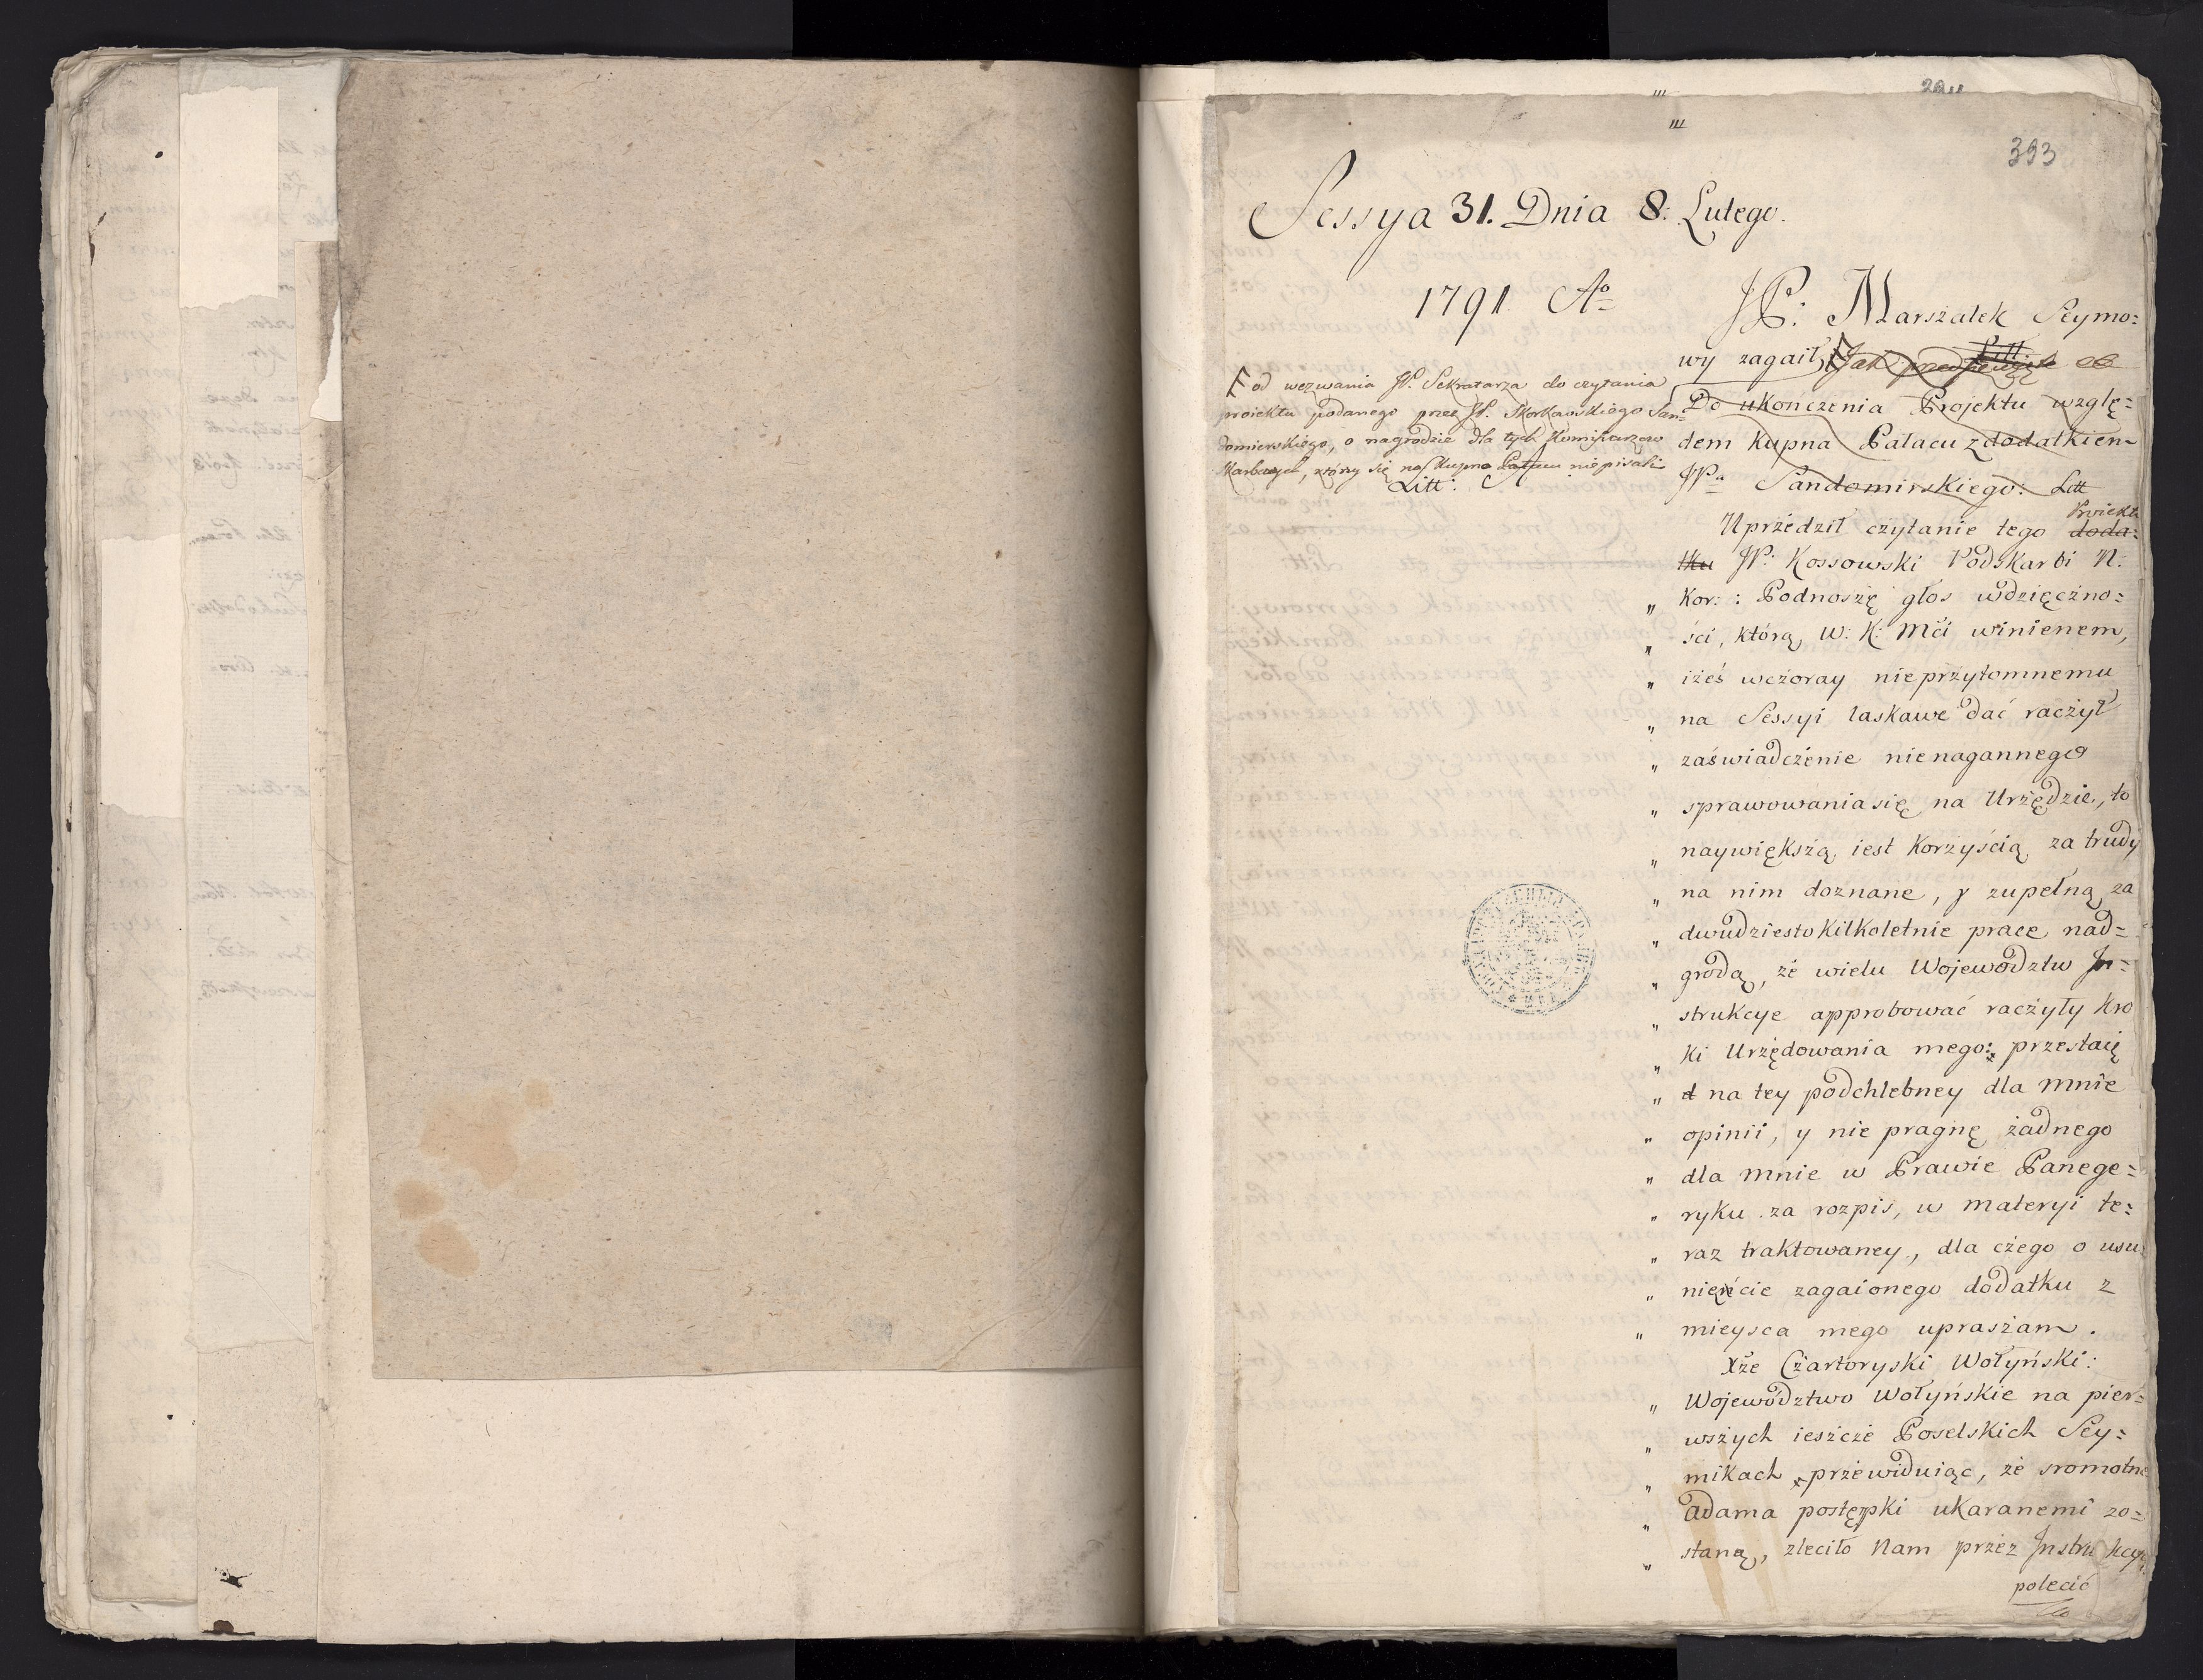 393
Sessya 31. Dnia 8: Lutego.
1791. Aº
JP: Marszałek Seymo=
wy zagaił,
od wezwania JP. Sekretarza do czytania
proiektu podanego przez JP. Skorkowskiego San=
domierskiego, o nagrodzie dla tych Kommissarzow
Skarbowych, którzy się na Kupno Pałacu niepisali
Litt: A
Do ukończenia Projektu wzglę=
dem Kupna Pałacu z dodatkiem
JPª Sandomirskiego: Litt
Uprzedził czytanie tego doda=
Proiektu
tku JP: Kossowski Podskarbi N:
„ Kor: : Podnoszę głos wdzięczno=
„ ści, którą W: K: Mći winienem,
„ iżeś wczoray nieprzytomnemu
„ na Sessyi łaskawe dać raczył
„ zaświadczenie nienagannego
„ sprawowania się na Urzędzie, to
„ naywiększą iest Korzyścią za trudy
„ na nim doznane, y zupełną za
„ dwudziestokilkoletnie prace nad=
„ grodą, że wielu Wojewodztw In=
„ strukcye approbować raczyły Kro
„ ki Urzędowania mego: przestaię
„ na tey podchlebney dla mnie
„ opinii, y nie pragnę żadnego
„ dla mnie w Prawie Panege=
„ ryku za rozpis, w materyi te=
„ raz traktowaney, dla czego o usu
„ nieńcie zagaionego dodatku z
„ mieysca mego upraszam.
Xże Czartoryski Wołyński:
„ Wojewodztwo Wołyńskie na pier=
„ wszych ieszcze Poselskich Sey=
„ mikach przewiduiąc, że sromotne
„ Adama postępki ukaranemi zo=
„ staną, zleciło Nam przez Instrukcyą
polecić